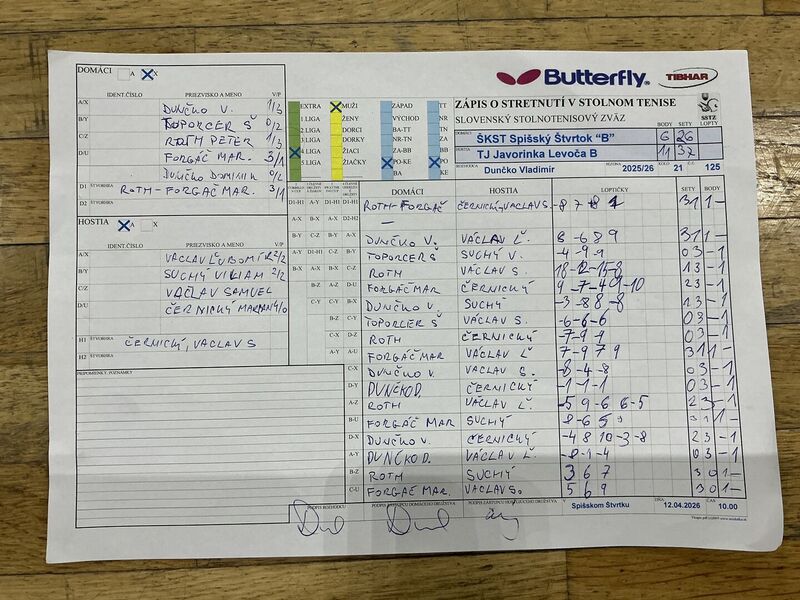 DOMÁCI A X
IDENT.ČÍSLO PRIEZVISKO A MENO V/P
A/X DUNČKO V. 1/3
B/Y TOPORCER Š 0/2
C/Z ROTH PETER 1/3
D/U FORGÁČ MAR. 3/1
DUNČKO DOMINIK 0/2
D1 ŠTVORHRA ROTH-FORGÁČ MAR. 3/1
D2
HOSTIA A X
IDENT.ČÍSLO PRIEZVISKO A MENO V/P
A/X VACLAV ĽUBOMÍR 2/2
B/Y SUCHÝ VILIAM 2/2
C/Z VACLAV SAMUEL
D/U ČERNICKÝ MARIAN 4/0
H1 ŠTVORHRA ČERNICKÝ, VACLAV S
H2
PRIPOMIENKY, POZNÁMKY
Butterfly TIBHAR
EXTRA MUŽI ZÁPAD TT
1.LIGA ŽENY VÝCHOD NR
2.LIGA DORCI BA-TT TN
3.LIGA DORKY NR-TN ZA
4.LIGA ŽIACI ZA-BB BB
5.LIGA ŽIAČKY PO-KE PO
BA KE
ZÁPIS O STRETNUTÍ V STOLNOM TENISE
SLOVENSKÝ STOLNOTENISOVÝ ZVÄZ
SSTZ
BODY SETY LOPTY
DOMÁCI ŠKST Spišský Štvrtok "B" 6 26
HOSTIA TJ Javorinka Levoča B 11 37
ROZHODCA Dunčko Vladimír SEZÓNA 2025/26 KOLO 21 Č.Z. 125
DOMÁCI HOSTIA LOPTIČKY SETY BODY
ROTH-FORGÁČ ČERNICKÝ, VACLAV S. 3 1 1 -
DUNČKO V. VÁCLAV Ľ. 8 -6 8 9 3 1 1 -
TOPORCER Š SUCHÝ V. -4 -9 -9 0 3 - 1
ROTH VÁCLAV S. 1 3 - 1
FORGÁČ MAR ČERNICKÝ 9 -7 -4 9 -10 2 3 - 1
DUNČKO V. SUCHÝ 1 3 - 1
TOPORCER Š VÁCLAV S. -6 -6 -6 0 3 - 1
ROTH ČERNICKÝ -7 -9 -9 0 3 - 1
FORGÁČ MAR VÁCLAV Ľ 7 -9 7 9 3 1 1 -
DUNČKO V. VÁCLAV S. -8 -4 -8 0 3 - 1
DUNČKO D. ČERNICKÝ -1 -1 -1 0 3 - 1
ROTH VÁCLAV Ľ. -5 9 -6 6 -5 2 3 - 1
FORGÁČ MAR SUCHÝ
DUNČKO V. ČERNICKÝ -4 8 10 -3 -8 2 3 - 1
DUNČKO D. VÁCLAV Ľ -8 -1 -4 0 3 - 1
ROTH SUCHÝ 3 6 7 3 0 1 -
FORGÁČ MAR. VACLAV S. 5 6 9 3 0 1 -
PODPIS ROZHODCU PODPIS ZÁSTUPCU DOMÁCEHO DRUŽSTVA PODPIS ZÁSTUPCU HOSŤUJÚCEHO DRUŽSTVA
Spišskom Štvrtku DŇA 12.04.2026 ČAS 10.00